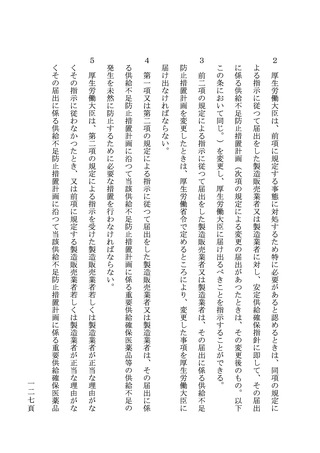 ２　厚生労働大臣は、前項に規定する事態に対処するため特に必要があると認めるときは、同項の規定に
よる指示に従つて届出をした製造販売業者又は製造業者に対し、安定供給確保指針に即して、その届出
に係る供給不足防止措置計画（次項の規定による変更の届出があつたときは、その変更後のもの。以下
この条において同じ。）を変更し、厚生労働大臣に届け出るべきことを指示することができる。
３　前二項の規定による指示に従つて届出をした製造販売業者又は製造業者は、その届出に係る供給不足
防止措置計画を変更したときは、厚生労働省令で定めるところにより、変更した事項を厚生労働大臣に
届け出なければならない。
４　第一項又は第二項の規定による指示に従つて届出をした製造販売業者又は製造業者は、その届出に係
る供給不足防止措置計画に沿つて当該供給不足防止措置計画に係る重要供給確保医薬品等の供給不足の
発生を未然に防止するために必要な措置を行わなければならない。
５　厚生労働大臣は、第二項の規定による指示を受けた製造販売業者若しくは製造業者が正当な理由がな
くその指示に従わなかつたとき、又は前項に規定する製造販売業者若しくは製造業者が正当な理由がな
くその届出に係る供給不足防止措置計画に沿つて当該供給不足防止措置計画に係る重要供給確保医薬品
一二七頁